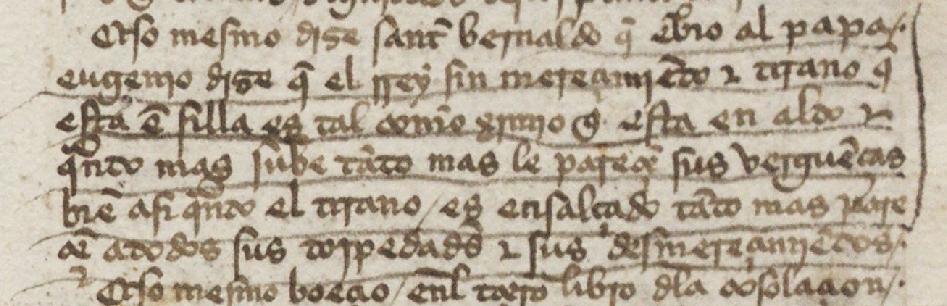 Otso mesmo dize sant bernaldo q̃ esc̃bio al papa
eugenio dize q̃ el rrey sin mereçimiẽto τ tirano q̃
está ẽ silla es tal como ximio q̃ esta en alto τ
q̃nto mas sube tãto mas le pareçẽ sus verguẽças
biẽ asi q̃nto el tirano es ensalçado tãto mas pare
çẽ a todos sus torpedades τ sus desmereçimiẽtos
Otso mesmo boecio enl terçero libro dla cõsolacion